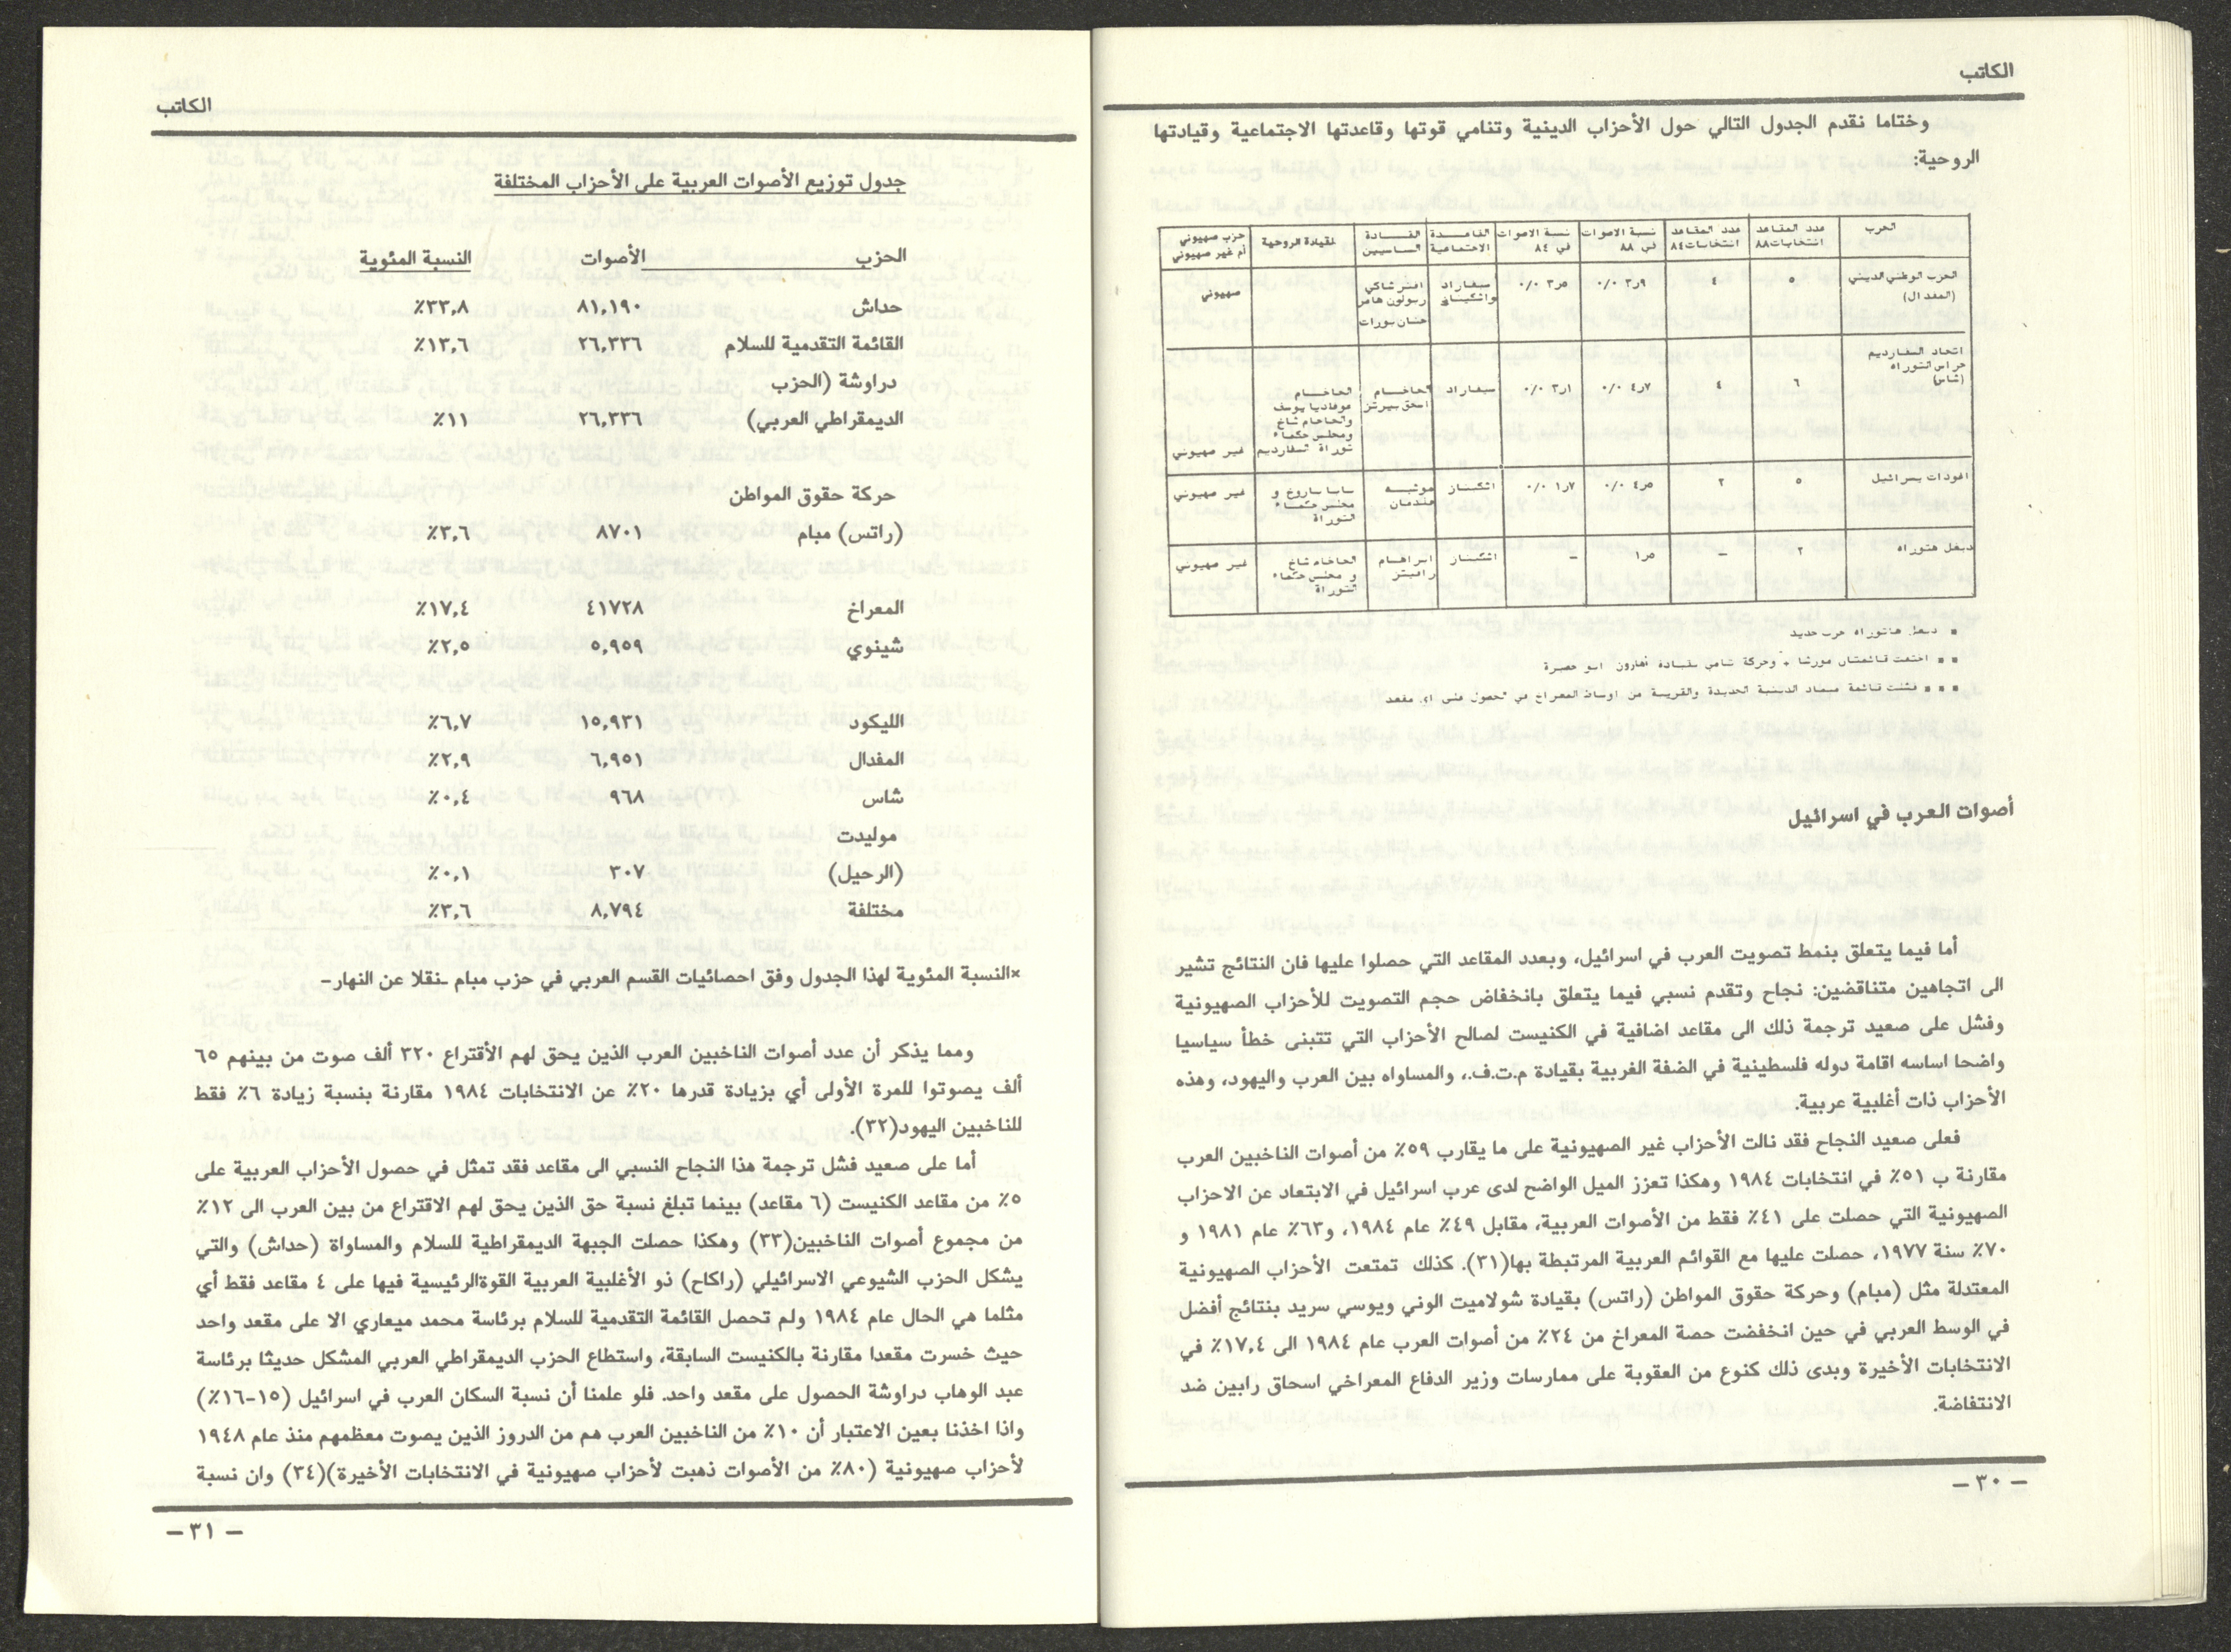 الكاتب
وختاما نقدم الجدول التالي حول الأحزاب الدينية وتنامي قوتها وقاعدتها الاجتماعية وقيادتها
الروحية:
الحزب | عدد المقاعد انتخابات ٨٨ | عدد المقاعد انتخابات ٨٤ | نسبة الاصوات في ٨٨ | نسبة الاصوات في ٨٤ | القاعدة الاجتماعية | القادة الساسيين | القيادة الروحية | حزب صهيوني أم غير صهيوني
الحزب الوطني الديني (المفدال) | ٥ | ٤ | ٣٫٩ ٠/٠ | ٣٫٥ ٠/٠ | سفاراد واشكيناز | افنر شاكي زبولون هامر حنان بورات | | صهيوني
اتحاد السفارديم حراس التوراه (شاس) | ٦ | ٤ | ٤٫٧ ٠/٠ | ٣٫١ ٠/٠ | سفاراد | الحاخام اسحق بيرتز | الحاخام عوفاديا يوسف والحاخام شاخ ومجلس حكماء توراة السفارديم | غير صهيوني
اغودات يسرائيل | ٥ | ٢ | ٤٫٥ ٠/٠ | ١٫٧ ٠/٠ | اشكيناز | موشيه فلدمان | مجلس حكماء التوراة | غير صهيوني
ديغل هتوراه | ٢ | – | ١٫٥ | – | اشكيناز | ابراهام رافيتز | الحاخام شاخ و مجلس حكماء التوراة | غير صهيوني
٭ ديغل هاتوراه حزب جديد
٭ ٭ اجتمعت قائمتان موراشا + وحركة تامي بقيادة أهارون ابو حصيرة
٭ ٭ ٭ فشلت قائمة ميماد الدينية الجديدة والقريبة من اوساط المعراخ في الحصول على اي مقعد
أصوات العرب في اسرائيل
أما فيما يتعلق بنمط تصويت العرب في اسرائيل، وبعدد المقاعد التي حصلوا عليها فان النتائج تشير
الى اتجاهين متناقضين: نجاح وتقدم نسبي فيما يتعلق بانخفاض حجم التصويت للأحزاب الصهيونية
وفشل على صعيد ترجمة ذلك الى مقاعد اضافية في الكنيست لصالح الأحزاب التي تتبنى خطأ سياسيا
واضحا اساسه اقامة دوله فلسطينية في الضفة الغربية بقيادة م.ت.ف.، والمساواه بين العرب واليهود، وهذه
الأحزاب ذات أغلبية عربية.
فعلى صعيد النجاح فقد نالت الأحزاب غير الصهيونية على ما يقارب ٥٩٪ من أصوات الناخبين العرب
مقارنة ب ٥١٪ في انتخابات ١٩٨٤ وهكذا تعزز الميل الواضح لدى عرب اسرائيل في الابتعاد عن الاحزاب
الصهيونية التي حصلت على ٤١٪ فقط من الأصوات العربية، مقابل ٤٩٪ عام ١٩٨٤، و٦٣٪ عام ١٩٨١ و
٧٠٪ سنة ١٩٧٧، حصلت عليها مع القوائم العربية المرتبطة بها(٣١). كذلك تمتعت الأحزاب الصهيونية
المعتدلة مثل (مبام) وحركة حقوق المواطن (راتس) بقيادة شولاميت الوني ويوسي سريد بنتائج أفضل
في الوسط العربي في حين انخفضت حصة المعراخ من ٢٤٪ من أصوات العرب عام ١٩٨٤ الى ١٧,٤٪ في
الانتخابات الأخيرة وبدى ذلك كنوع من العقوبة على ممارسات وزير الدفاع المعراخي اسحاق رابين ضد
الانتفاضة.
– ٣٠ –
الكاتب
جدول توزيع الأصوات العربية على الأحزاب المختلفة
الحزب الأصوات النسبة المئوية
حداش ٨١,١٩٠ ٣٣,٨٪
القائمة التقدمية للسلام ٢٦,٣٣٦ ١٣,٦٪
دراوشة (الحزب
الديمقراطي العربي) ٢٦,٣٣٦ ١١٪
حركة حقوق المواطن
(راتس) مبام ٨٧٠١ ٣,٦٪
المعراخ ٤١٧٢٨ ١٧,٤٪
شينوي ٥,٩٥٩ ٢,٥٪
الليكود ١٥,٩٣١ ٦,٧٪
المفدال ٦,٩٥١ ٢,٩٪
شاس ٩٦٨ ٠,٤٪
موليدت
(الرحيل) ٣٠٧ ٠,١٪
مختلفة ٨,٧٩٤ ٣,٦٪
×النسبة المئوية لهذا الجدول وفق احصائيات القسم العربي في حزب مبام -نقلا عن النهار-
ومما يذكر أن عدد أصوات الناخبين العرب الذين يحق لهم الأقتراع ٣٢٠ ألف صوت من بينهم ٦٥
ألف يصوتوا للمرة الأولى أي بزيادة قدرها ٢٠٪ عن الانتخابات ١٩٨٤ مقارنة بنسبة زيادة ٦٪ فقط
للناخبين اليهود(٣٢).
أما على صعيد فشل ترجمة هذا النجاح النسبي الى مقاعد فقد تمثل في حصول الأحزاب العربية على
٥٪ من مقاعد الكنيست (٦ مقاعد) بينما تبلغ نسبة حق الذين يحق لهم الاقتراع من بين العرب الى ١٢٪
من مجموع أصوات الناخبين(٣٣) وهكذا حصلت الجبهة الديمقراطية للسلام والمساواة (حداش) والتي
يشكل الحزب الشيوعي الاسرائيلي (راكاح) ذو الأغلبية العربية القوةالرئيسية فيها على ٤ مقاعد فقط أي
مثلما هي الحال عام ١٩٨٤ ولم تحصل القائمة التقدمية للسلام برئاسة محمد ميعاري الا على مقعد واحد
حيث خسرت مقعدا مقارنة بالكنيست السابقة، واستطاع الحزب الديمقراطي العربي المشكل حديثا برئاسة
عبد الوهاب دراوشة الحصول على مقعد واحد. فلو علمنا أن نسبة السكان العرب في اسرائيل (١٥-١٦٪)
واذا اخذنا بعين الاعتبار أن ١٠٪ من الناخبين العرب هم من الدروز الذين يصوت معظمهم منذ عام ١٩٤٨
لأحزاب صهيونية (٨٠٪ من الأصوات ذهبت لأحزاب صهيونية في الانتخابات الأخيرة)(٣٤) وان نسبة
– ٣١ –